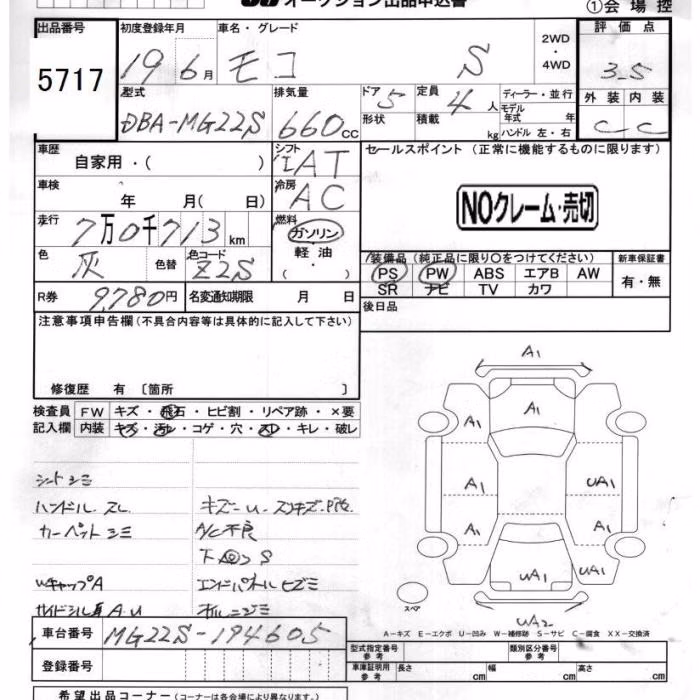 オークション出品申込書
①会場控
出品番号 初度登録年月 車名・グレード 2WD・4WD 評価点
5717 19 6月 モコ S 3.5
型式 排気量 ドア 5 定員 4人 ディーラー・並行 外装 内装
DBA-MG22S 660cc 形状 積載 kg モデル年式 年 C C
ハンドル 左・右
車歴 自家用・( ) シフト IAT セールスポイント (正常に機能するものに限ります)
車検 年 月( 日) 冷房 AC NOクレーム・売切
走行 7万0千713km 燃料 ガソリン 軽油 ( )
装備品(純正品に限り〇をつけてください) 新車保証書
色 灰 色替 色コード Z2S PS PW ABS エアB AW 有・無
SR ナビ TV カワ
R券 9,780円 名変通知期限 月 日 後日品
注意事項申告欄(不具合内容等は具体的に記入して下さい)
修復歴 有 〔箇所 〕
検査員 FW キズ・飛石・ヒビ割・リペア跡・×要
記入欄 内装 キズ・汚れ・コゲ・穴・スレ・キレ・破レ
シートシミ
ハンドル スレ キズ-U-スリキズ
カーペットシミ A/C不良
S
WキャップA エンドパネルヒズミ
サイドシル A U
A1
A1
A1
A1 UA1
A1 A1
UA1 UA1
スペア
UA2
A-キズ E-エクボ U-凹み W-補修跡 S-サビ C-腐食 XX-交換済
車台番号 MG22S-194605 型式指定番号 参考 類別区分番号 参考
登録番号 車庫証明用 参考 長さ cm 幅 cm 高さ cm
希望出品コーナー(コーナーは各会場により異なります。)